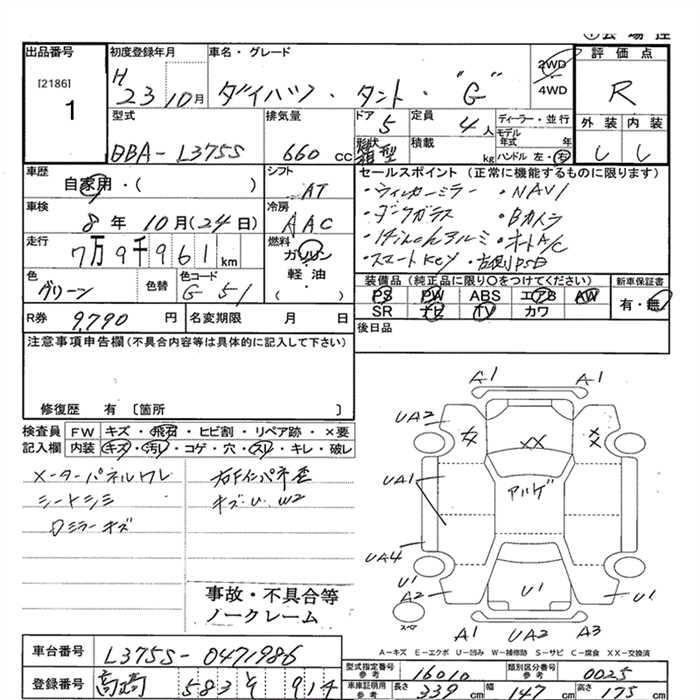 出品番号
[2186]
1
初度登録年月
H
23 10月
車名・グレード
ダイハツ・タント・"G"
2WD
4WD
評価点
R
外装 内装
し し
型式
DBA-L375S
排気量
660 cc
ドア
5
形状
箱型
定員
4人
積載
kg
ディーラー・並行
モデル年式 年
ハンドル 左・右
車歴
自家用・( )
シフト
AT
車検
8年10月(24日)
冷房
AAC
走行
7万9千961km
燃料
ガソリン
軽・油
( )
色
グリーン
色替
色コード
G51
R券 9,790円
名変期限 月 日
セールスポイント(正常に機能するものに限ります)
・ウィンカーミラー ・NAVI
・ダークガラス ・Bカメラ
・14inchアルミ ・オートA/C
・スマートKEY ・右側PSD
装備品(純正品に限り○をつけてください)
PS PW ABS エアB AW
SR ナビ TV カワ
新車保証書
有・無
後日品
注意事項申告欄(不具合内容等は具体的に記入して下さい)
修復歴 有〔箇所 〕
検査員 FW キズ・飛石・ヒビ割・リペア跡・×要
記入欄 内装 キズ・汚れ・コゲ・穴・スレ・キレ・破レ
メーターパネルワレ
シートシミ
Dミラーキズ
右Fインパネ歪
キズ・U W2
事故・不具合等
ノークレーム
A1 A1
UA2
XX
UA1
アルゲ
UA4
U1
A2
U1
U1
スペア
A1 UA2 A3
A-キズ E-エクボ U-凹み W-補修跡 S-サビ C-腐食 XX-交換済
車台番号 L375S-0471986
登録番号 高崎 583 そ 914
型式指定番号 参考 16010
類別区分番号 参考 0025
車庫証明用 参考 長さ 339 cm 幅 147 cm 高さ 175 cm